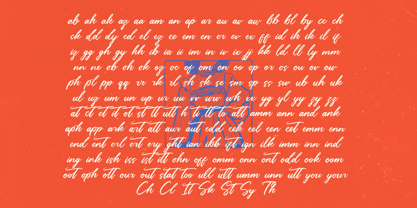 ab ah ak az aa am an ap ar au aw bb bl by cc ch
ck dd dy ed el ez ee em en er ev ff id ih ik il if
iz gg gh gy hh ib ia ii im in iv jj kk ld ll ly mm
nn ne eb eh ek es of om on oo op or os ou ov ow
ph pl pp qq rr sh sk se sp ss sw ub uh uk
ul uz um un up ur uu vv ww wh xx yg yl yy zy zz
at ct et it ot st tt ult lt tt to ut amm ann and ank
aph app ark art alt aur aut edd eek eel een eet emm enn
end ent erl ert ery ght ian ibb ift ign ilk imm inn ind
ing ink ish iss ist itt chn off omm onn ont odd ook oom
oot oph ott our out stat too ull utt umm unn utl you your
Ch Cl It Sk St Sy Th